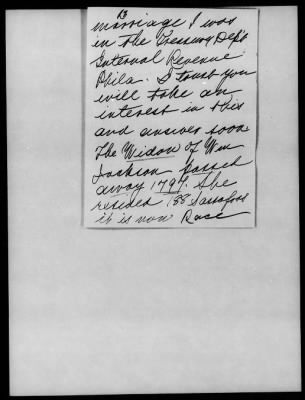 13
marriage I was
in the Treasury Dept
Internal Revenue
Phila. I trust you
will take an
interest in this
and answer soon.
The Widow of Wm
Jackson passed
away 1797. She
resided 188 Sassafras
it is now Race